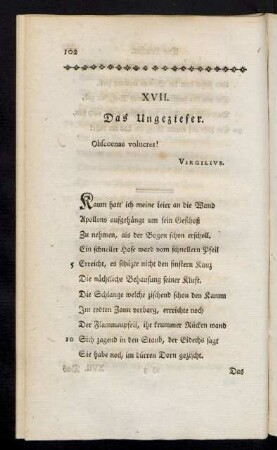 102
XVII.
Das Ungeziefer.
Obscoenae volucres!
VIRGILIVS.
Kaum hatt' ich meine Leier an die Wand
Apollons aufgehängt um sein Geschoß
Zu nehmen, als der Bogen schon erscholl.
Ein schneller Hase ward vom schnellern Pfeil
5 Erreicht, es schützte nicht den finstern Kauz
Die nächtliche Behausung seiner Kluft.
Die Schlange welche zischend schon den Kamm
Im todten Zaun verbarg, erreichte noch
Der Flammenpfeil, ihr krummer Rücken wand
10 Sich zagend in den Staub, der Eidechs sagt
Sie habe noch im dürren Dorn gezischt.
Das